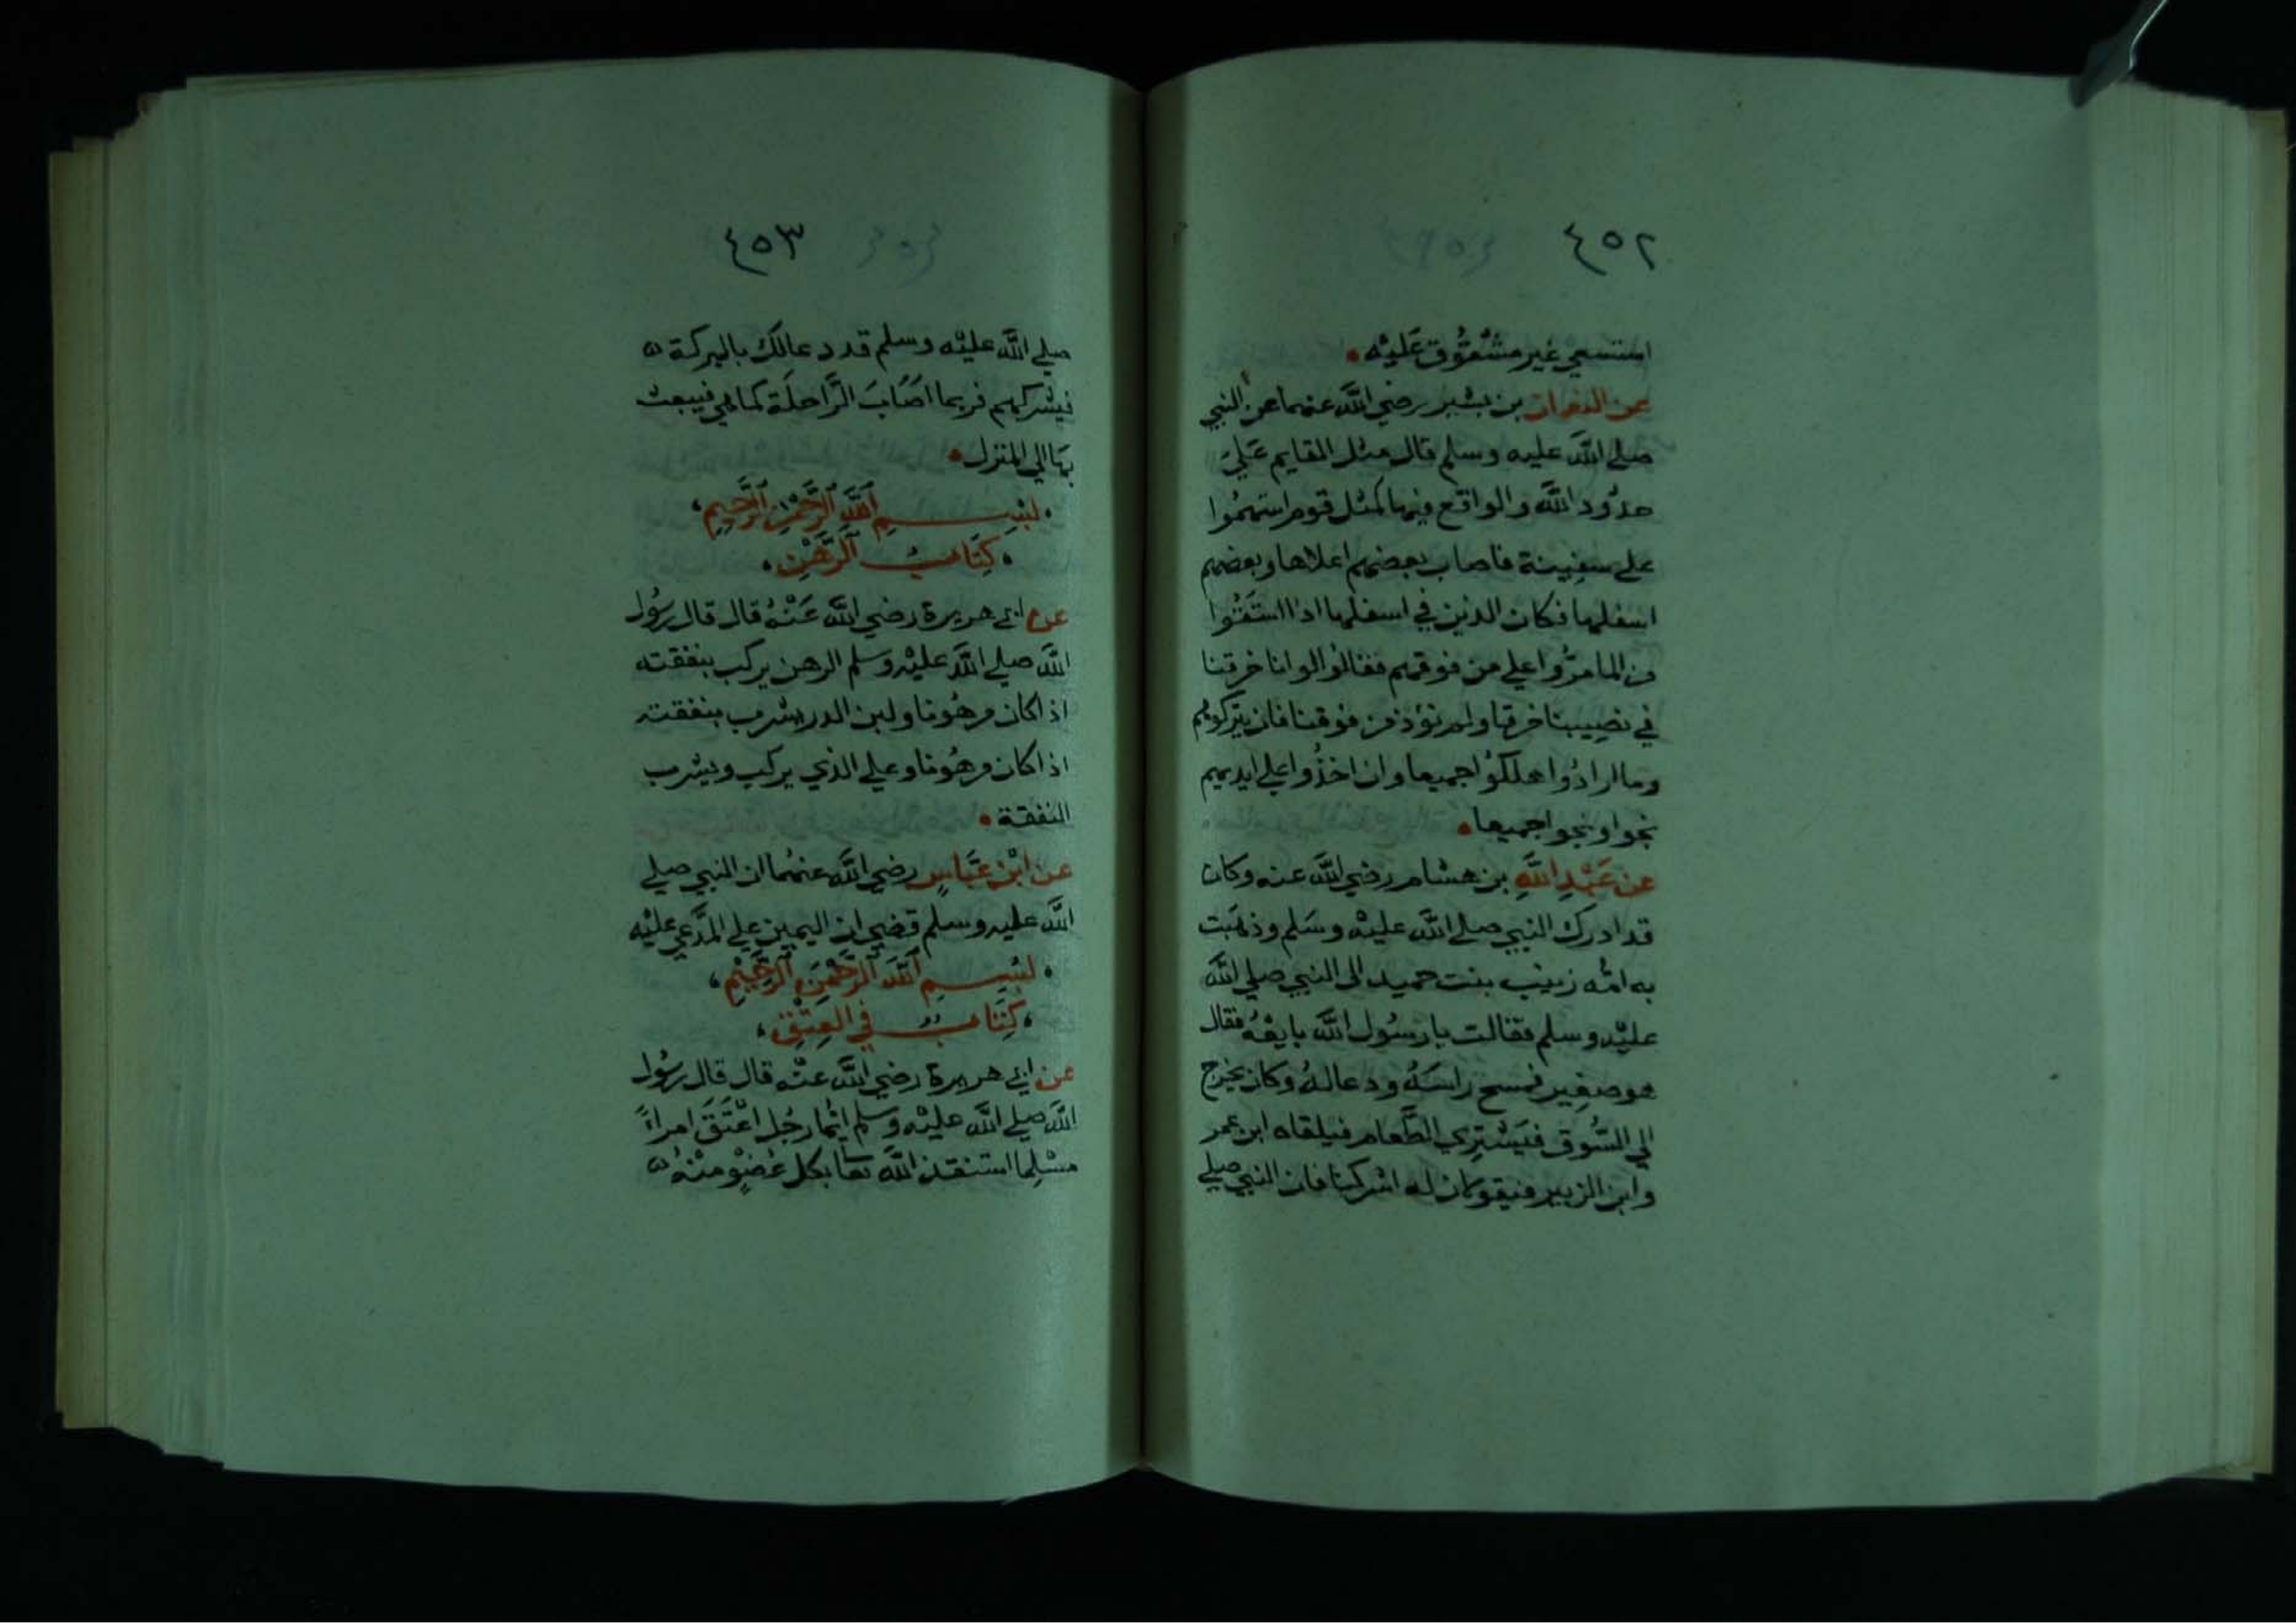 ٤٥٢
استسعي غير مشقوق عليه
عن النعمان بن بشير رضي الله عنهما عن النبي
صلي الله عليه وسلم قال مثل القايم علي
حدود الله والواقع فيها كمثل قوم استهموا
علي سفينة فاصاب بعضهم اعلاها وبعضهم
اسفلها فكان الذين في اسفلها اذا استقوا
من الما مروا علي من فوقهم فقالوا لو انا خرقنا
في نصيبنا خرقا ولم نؤذ من فوقنا فان يتركوهم
وما ارادوا هلكوا جميعا وان اخذوا علي ايديهم
نجوا ونجوا جميعا
عن عبد الله بن هشام رضي الله عنه وكان
قد ادرك النبي صلي الله عليه وسلم وذهبت
به امه زينب بنت حميد الى النبي صلي الله
عليه وسلم فقالت يا رسول الله بايعه فقال
هو صغير فمسح راسه ودعا له وكان يخرج
الي السوق فيشتري الطعام فيلقاه ابن عمر
وابن الزبير فيقولان له اشركنا فان النبي صلي
٤٥٣
صلي الله عليه وسلم قد دعا لك بالبركة
فيشركهم فربما اصاب الراحلة كما هي فيبعث
بها الي المنزل
بسم الله الرحمن الرحيم
كتاب الرهن
عن ابي هريرة رضي الله عنه قال قال رسول
الله صلي الله عليه وسلم الرهن يركب بنفقته
اذا كان مرهونا ولبن الدر يشرب بنفقته
اذا كان مرهونا وعلي الذي يركب ويشرب
النفقة
عن ابن عباس رضي الله عنهما ان النبي صلي
الله عليه وسلم قضي ان اليمين علي المدعي عليه
بسم الله الرحمن الرحيم
كتاب في العتق
عن ابي هريرة رضي الله عنه قال قال رسول
الله صلي الله عليه وسلم ايما رجل اعتق امراءً
مسلما استنقذ الله تعا بكل عضو منه